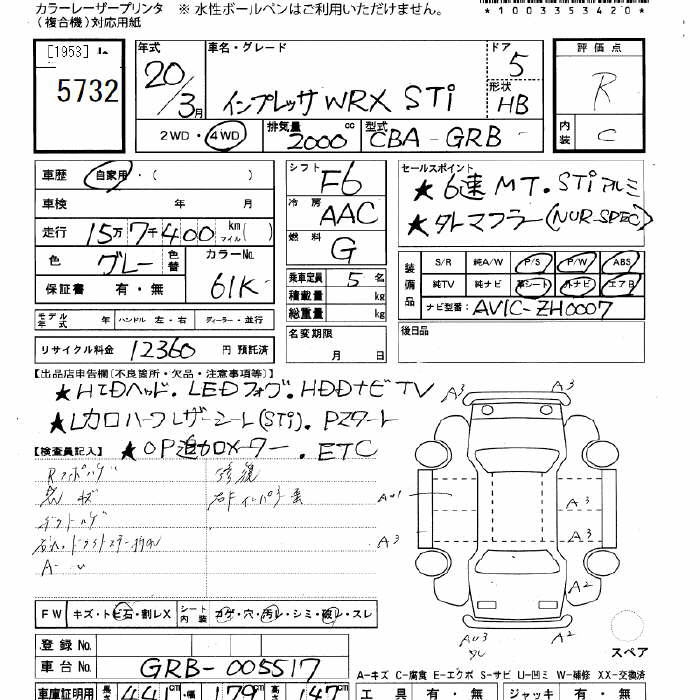 カラーレーザープリンタ ※ 水性ボールペンはご利用いただけません。
(複合機)対応用紙
*1003353420*
[1953]
5732
年式 20/3月
車名・グレード インプレッサ WRX STi
ドア 5
形状 HB
評価点 R
内装 C
2WD・4WD
排気量 2000 cc
型式 CBA-GRB
車歴 自家用・( )
車検 年 月
走行 15万7千400 km マイル( )
色 グレー 色替 カラーNo. 61K
保証書 有・無
シフト F6
冷房 AAC
燃料 G
乗車定員 5 名
積載量 kg
総重量 kg
名変期限 月 日
セールスポイント
★6速MT.STiアルミ
★タルマフラー(NUR SPEC)
装備品 S/R 純A/W P/S P/W ABS
純TV 純ナビ 革シート 外ナビ エアB
ナビ型番: AVIC-ZH0007
後日品
モデル年式 年 ハンドル 左・右 ディーラー・並行
リサイクル料金 12360 円 預託済
【出品店申告欄(不良箇所・欠品・注意事項等)】
★HIDヘッド.LEDフォグ.HDDナビTV
★レカロハーフレザーシート(STi).Pスタート
【検査員記入】 ★OP追加メーター.ETC
修復
A3 A3
A3
A3 A3
A2
A2
FW キズ・トビ石・割レX シート内装 コゲ・穴・汚レ・シミ・破レ・スレ
スペア
登録No.
車台No. GRB-005517
A-キズ C-腐食 E-エクボ S-サビ U-凹ミ W-補修 XX-交換済
車庫証明用 長さ 441 cm・幅 179 cm 高さ 147 cm
工具 有・無 ジャッキ 有・無